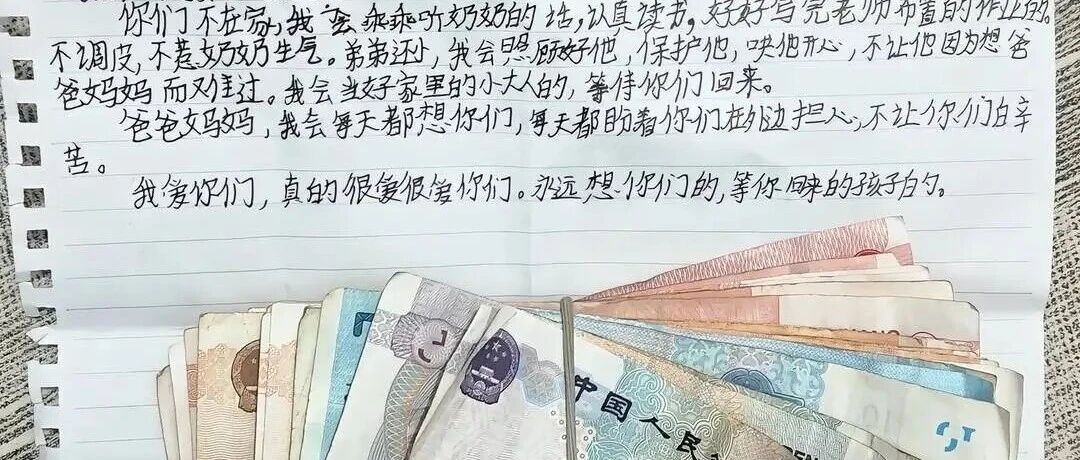 你们不在家,我会乖乖听奶奶的话,认真读书,好好写完老师布置的作业的。
不调皮,不惹奶奶生气。弟弟还小,我会照顾好他,保护他,哄他开心,不让他因为想爸
爸妈妈而难过。我会当好家里的小大人的,等待你们回来。
爸爸妈妈,我会每天都想你们,每天都盼着你们在外边担心,不让你们白辛
苦。
我爱你们,真的很爱很爱你们。永远想你们的,等你回来的孩子的。
中国人民